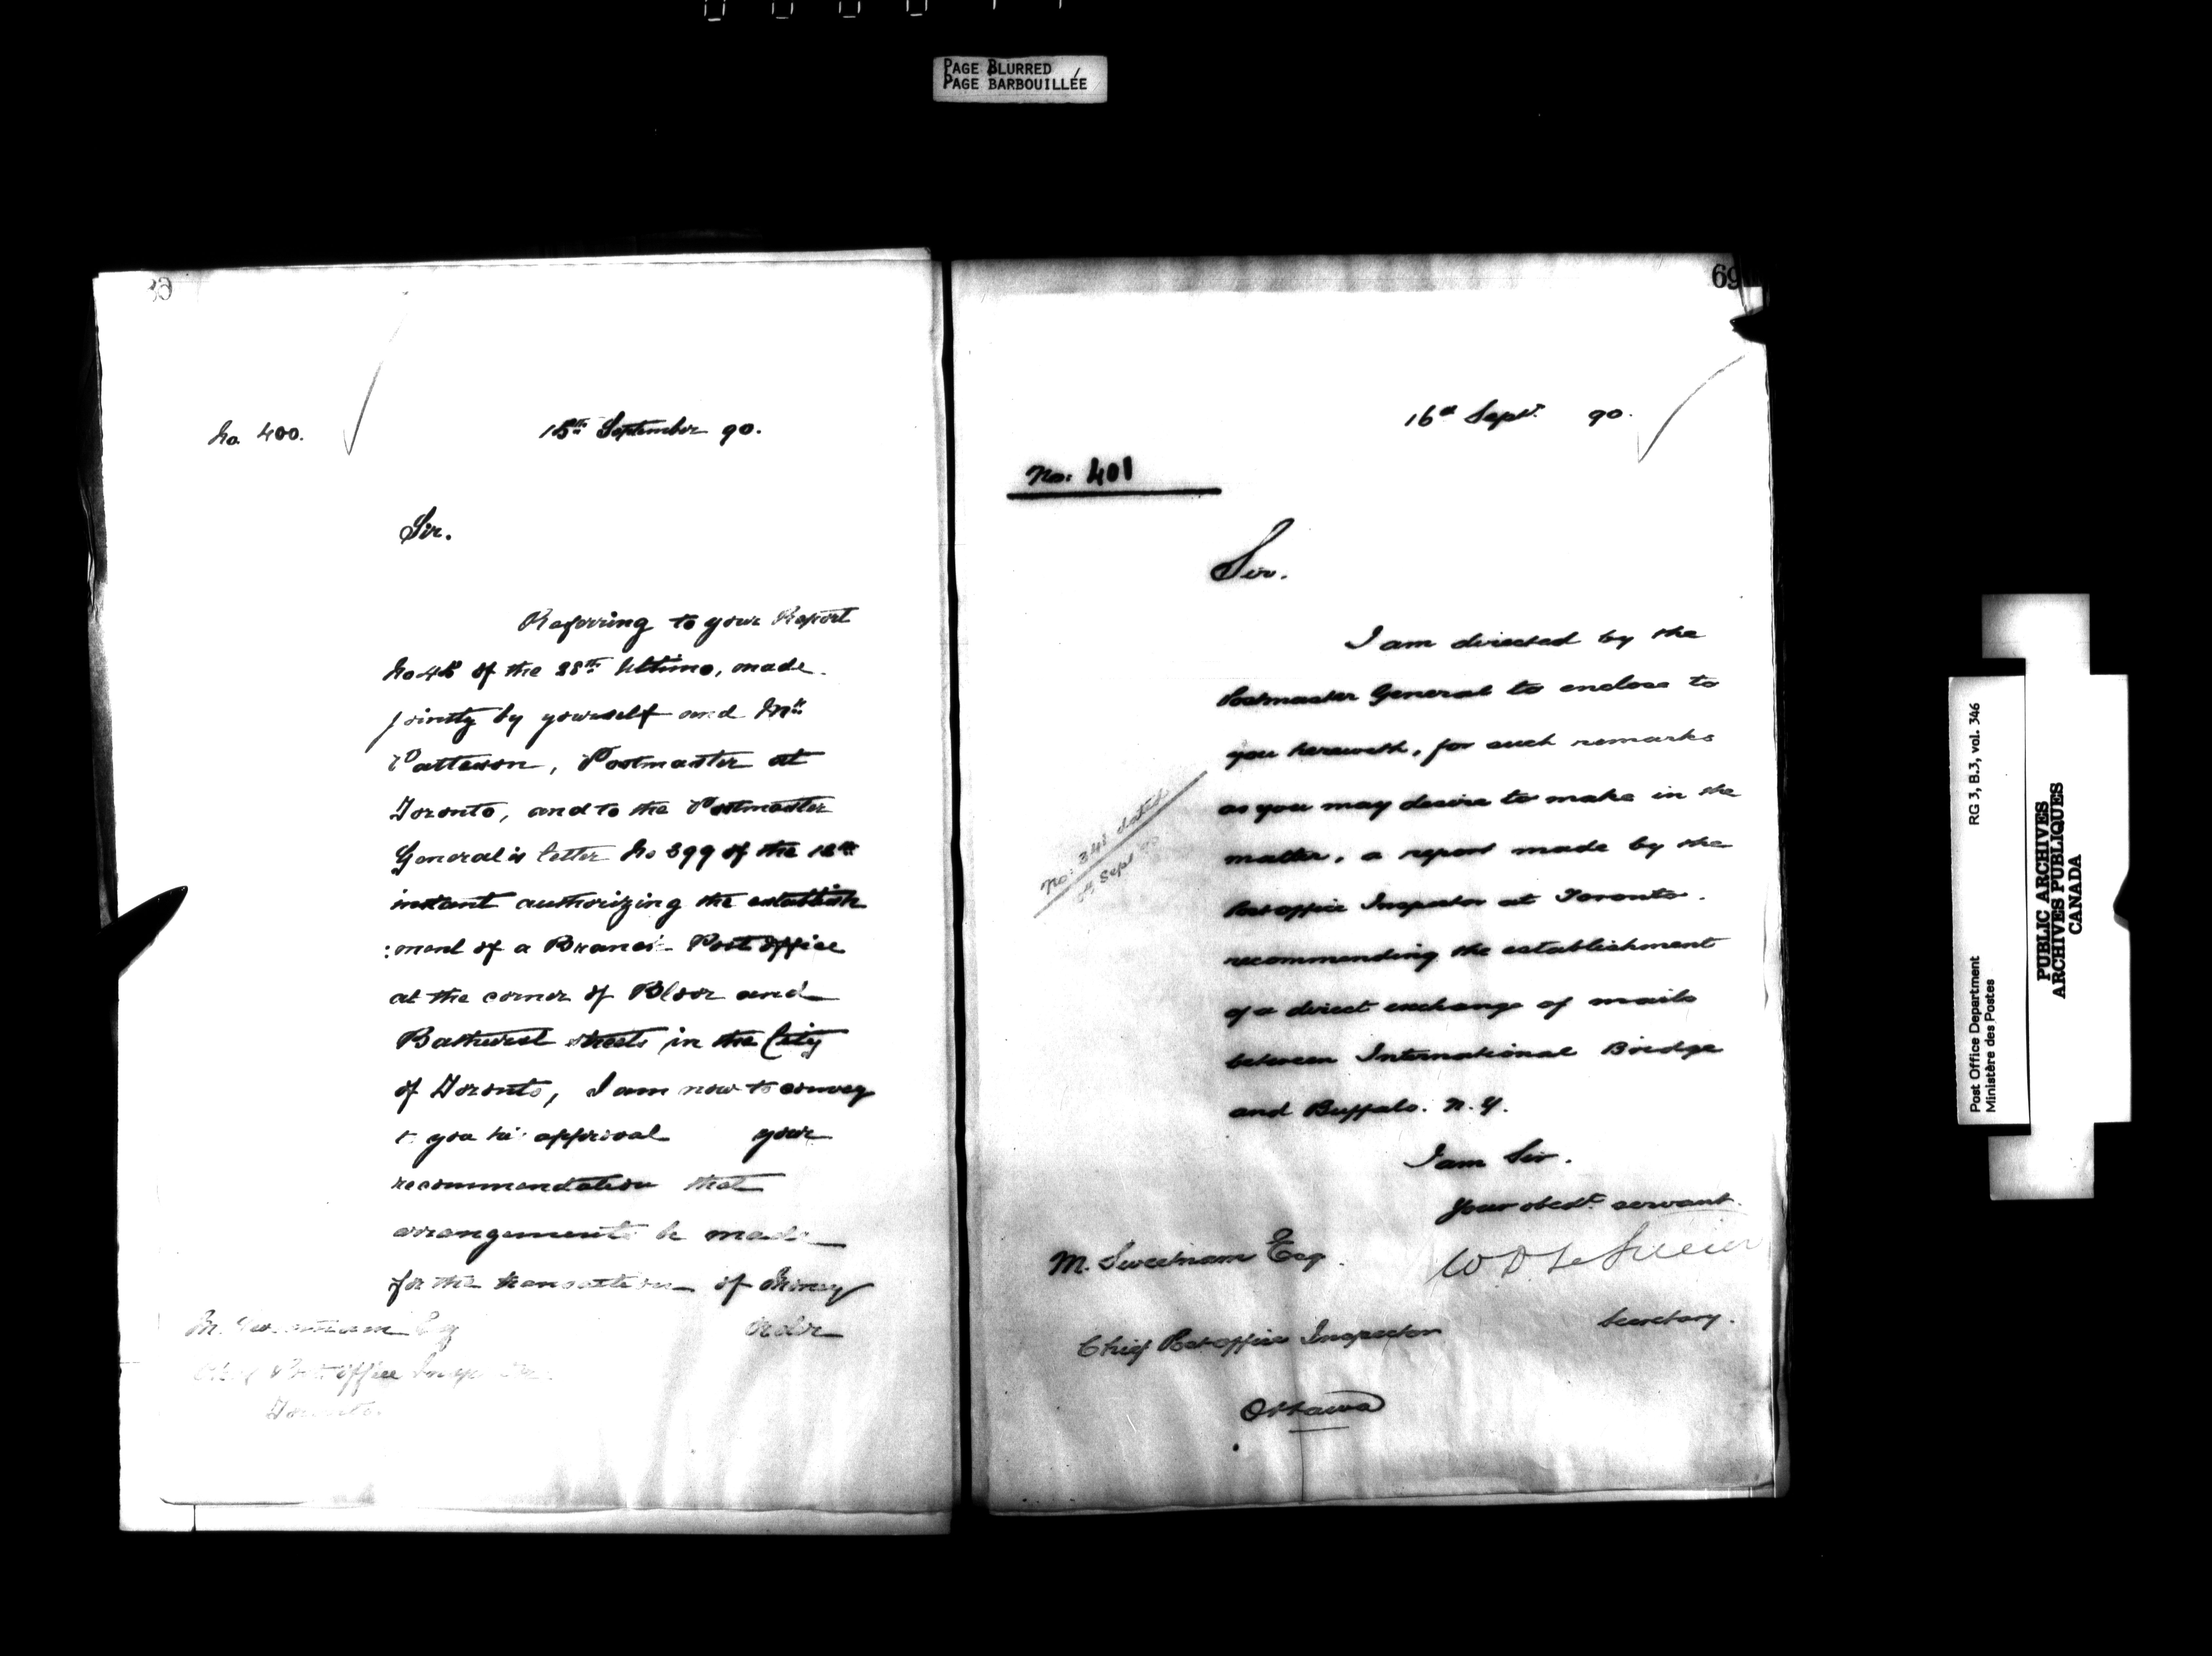 PAGE BLURRED
PAGE BARBOUILLÉE
No 400.
15th September 90.
Sir.
Referring to your Report
No 45 of the 28th Ultimo, made
jointly by yourself and Mr
Patteson, Postmaster at
Toronto, and to the Postmaster
General's letter No 399 of the
instant authorizing the establish
:ment of a Branch Post Office
at the corner of Bloor and
Bathurst streets in the City
of Toronto, I am now to convey
to you his approval your
recommendation that
arrangements be made
for the transaction of Money
Order
M. Sweetnam Esq
Chief Post Office Inspector
Toronto.
69
16th Sept. 90.
No: 401
Sir.
I am directed by the
Postmaster General to enclose to
you herewith, for such remarks
as you may desire to make in the
matter, a report made by the
Post office Inspector at Toronto.
recommending the establishment
of a direct exchange of mails
between International Bridge
and Buffalo. N.Y.
No: 341 dated
Sept
I am Sir.
Your obedt. servant.
W D LeSueur
Secretary.
M. Sweetnam Esq.
Chief Post office Inspector
Ottawa
RG 3, B.3, vol. 346
Post Office Department
Ministère des Postes
PUBLIC ARCHIVES
ARCHIVES PUBLIQUES
CANADA